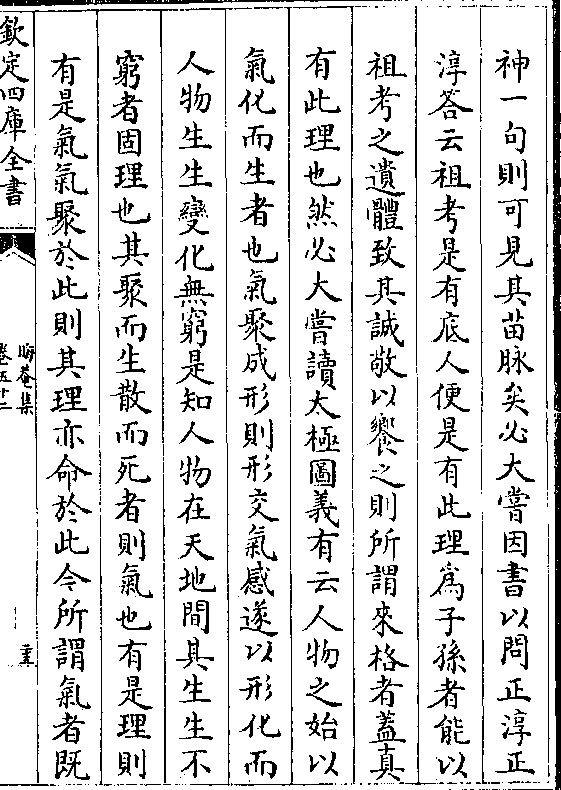 神一句則可見其苗脉矣必大嘗因書以問正淳正
淳答云祖考是有底人便是有此理為子孫者能以
祖考之遺體致其誠敬以饗之則所謂來格者葢真
有此理也然必大嘗讀太極圖義有云人物之始以
氣化而生者也氣聚成形則形交氣感遂以形化而
人物生生變化無窮是知人物在天地間其生生不
窮者固理也其聚而生散而死者則氣也有是理則
有是氣氣聚於此則其理亦命於此今所謂氣者既
欽定四庫全書
晦菴集
卷五十二